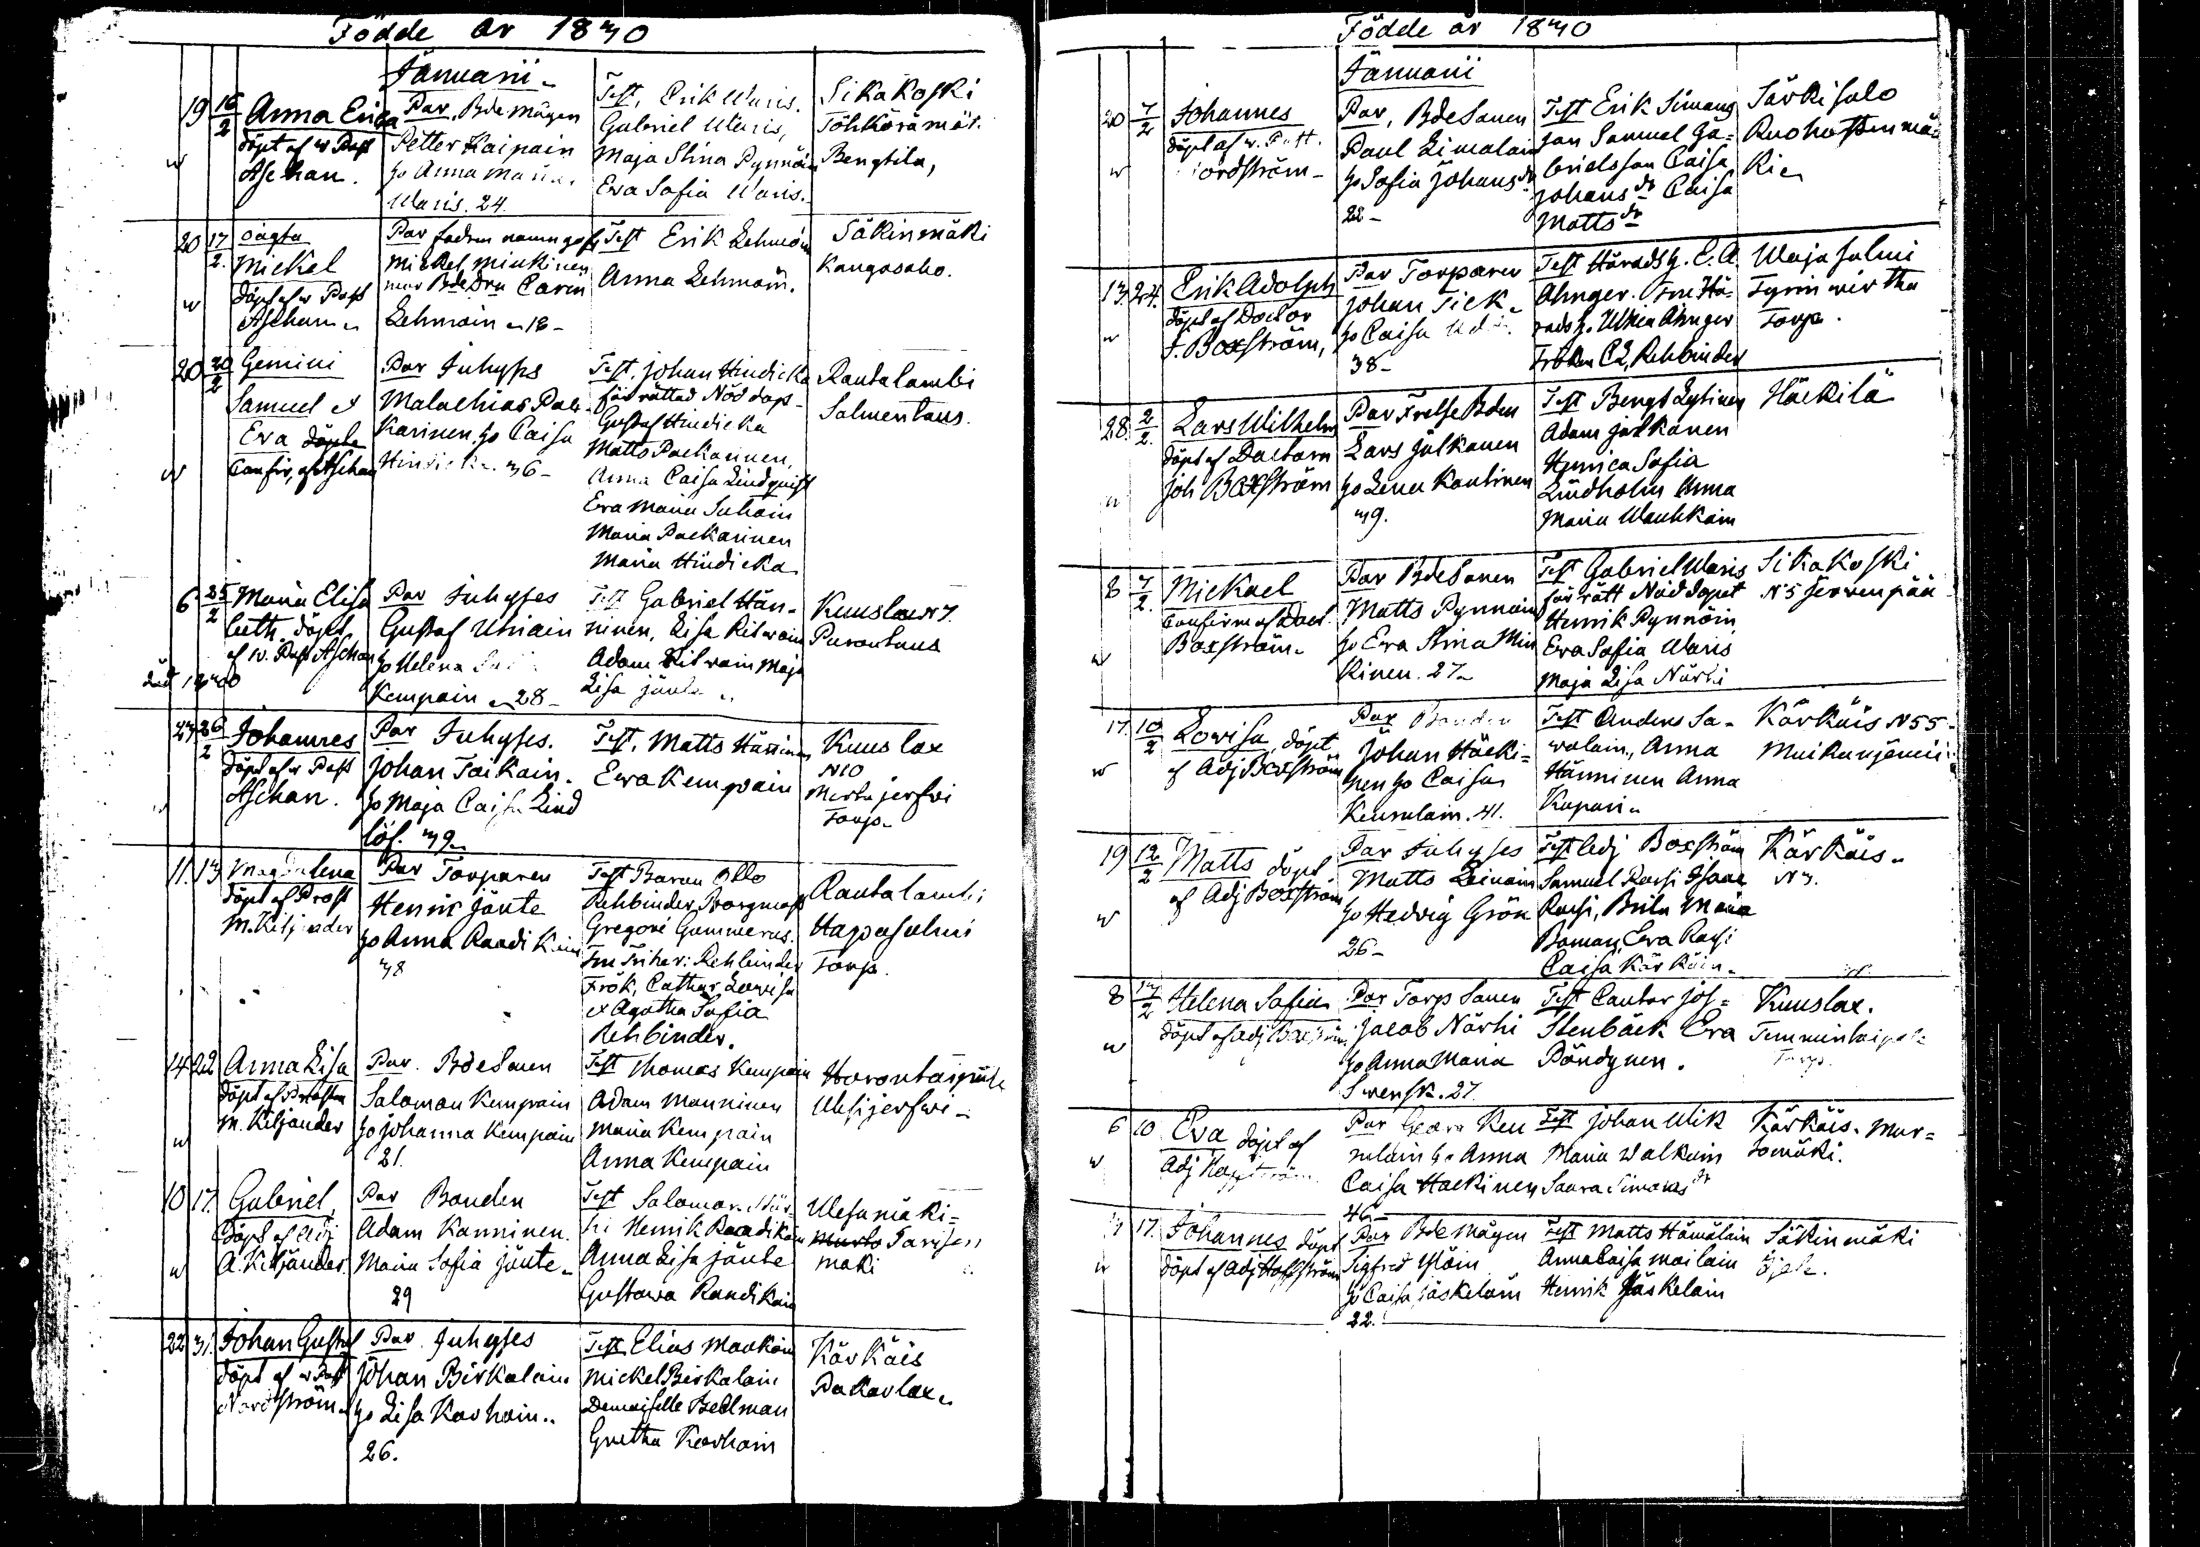 Födde år 1840
Januarii
19 16/2 Anna Erica
döpt af w Past
Aschan.
w
Par. Bdemågen
Petter Kaipain
Ho Anna Maria
Waris. 24.
Test. Erik Waris.
Gabriel Waris,
Maja Stina Pynnöin
Ewa Sofia Waris.
Sikakoski
Bengtila,
20 17/2. oägta
Mickel
döpt af w Past
Aschan
w
Mickel Minkinen
Carin
Lehmoin 18-
Test Erik Lehmoin
Anna Lehmoin.
Säkinmäki
Kangasaho.
20 20/2 Gemini
Samuel et
Eva döpte
Confir, af Aschan
w
Par Inhyses
Malachias Pac-
karinen, Ho Caisa
Hindicka 36-
Test. Johan Hindicka
förrättad Nöd dop-
Gustaf Hindicka
Matts Packarinen,
Anna Caisa Lindquist
Eva Maria Suhoin
Maria Packarinen
Maria Hindicka
Rautalambi
Salmentaus.
6 25/2 Maria Elisa
beth. döpt
af w. Past Aschan
Par Inhyses
Gustaf Uniain
Ho Helena
Kempain 28-
Test Gabriel Hän-
ninen, Lisa Ritwain
Adam Ritwain Maja
Lisa Jänte
Kuuslax N7.
Purontaus
27 26/2 Johannes
döpt af w Past
Aschan.
Par Inhyses.
Johan Taikain.
Ho Maja Caisa Lind
löf. 39.
Test, Matts Hänninen
Ewa Kempain
Kuuslax
N10
Torp.
11. 13 Magdalena
döpt af Prost
M. Kiljander
Par Torparen
Henric Jänte
Ho Anna Raadikain
38
Test Baron Otto
Rehbinder, Borgmast
Gregori Gummerus.
Fru Friher: Rehbinder
Frök, Cathar. Lowisa
et Agatha Sofia
Rehbinder.
Rautalambi
Hapasalmi
Torp.
14 22 Anna Lisa
döpt af Prosten
M. Kiljander
w
Par. Bdesonen
Salomon Kempain
Ho Johanna Kempain
21.
Test Thomas Kempain
Adam Manninen
Maria Kempain
Anna Kempain
Horontaipale
Uhsijerfwi-
10 17. Gabriel,
döpt af Adj
A. Kiljander.
w
Par Bonden
Adam Kanninen.
Maria Sofia Jänte-
29
Test Salomon När-
hi Henrik Raadikain
Anna Lisa Jänte
Gustawa Raadikain
Wesamäki-
maki
22 31. Johan Gustaf
döpt af w Past
Nordström
Par. Inhyses
Johan Birkalain
Ho Lisa Korhoin..
26.
Test Elias Maukoin
Mickel Birkalain
Demoiselle Bellman
Gretha Korhoin
Kärkäis
Pakarlax
Födde år 1840
Januarii
20 7/2 Johannes
döpt af w. Past.
Nordström-
w
Par, Bdesonen
Paul Limalain
Ho Sofia Johans dr
22-
Test Erik Simons
son Samuel Ga=
brielsson Caisa
Johans dr Caisa
Matts dr
Särkisalo
13 24. Erik Adolph
döpt af Doctor
J. Boxström,
w
Par Torparen
Johan Tick
Ho Caisa
38-
Test Häradsh. C. A.
Ahnger. Fru Hä-
radsh. Ulrica Ahnger
Fröken C L Rehbinder
Wajasalmi
Torp.
28. 2/2. Lars Wilhelm
döpt af Doctorn
Joh Boxström
w
Par Frelse Bden
Lars Jalkanen
Ho Lena Kautinen
39.
Test Bengt Lytinen
Adam Jalkanen
Henrica Sofia
Lindholm Anna
Maria Wauhkoin
Häckilä
8 7/2. Mickael
Confirm af Doct.
Boxström.
w
Par Bdesonen
Matts Pynnöin
Ho Eva Stina Min
kinen. 27
Test Gabriel Waris
förrätt Nöddopet
Henrik Pynnöin
Eva Sofia Waris
Maja Lisa Närhi
Sikakoski
N5 Jerwenpää
17 10/2 Lowisa, döpt
af Adj Boxström
w
Par Bonden
Johan Häcki=
nen Ho Caisa
Keurulain. 41.
Test Anders Sa-
wolain, Anna
Hänninen Anna
Kopari
Kärkäis N55.
19 12/2 Matts döpt
af Adj Boxström
w
Par Inhyses
Matts Leinoin
Ho Hedvig Grön
26-
Test Adj Boxström
Samuel Rossi Isaac
Rossi, Brita Maria
Boman, Eva Rossi
Caisa Kärkäin-
Kärkäis
N3.
8 17/2 Helena Sofia
döpt af Adj Boxström
w
Par Torp sonen
Jacob Närhi
Ho Anna Maria
Swensk. 27.
Test Cantor Jos=
Stenbäck Eva
Pöndynen.
Kuuslax.
Temmintaipale
Torp.
6 10 Eva döpt af
Adj Hoffström
w
Par Georg Keu
rulain Ho Anna
Caisa Hackinen
46-
Test Johan Ulik
Maria Walkain
Saara Simons dr
Kärkäis. Mur=
tomäki.
17. Johannes döpt
döpt af Adj Hoffström
w
Par Bdemågen
Sigfrid Ylöin
Ho Caisa Jäskelain
22.
Test Matts Hämälain
Anna Caisa Moilain
Henrik Jäskelain
Säkinmäki